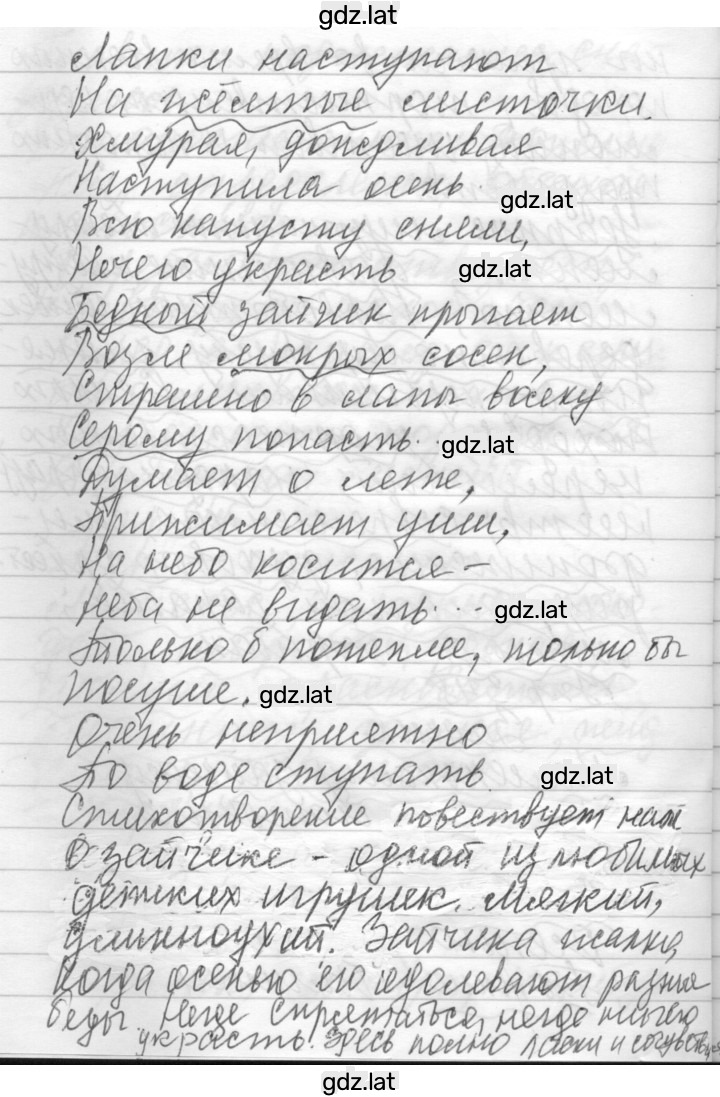 gdz.lat
Лапки наступают
На жёлтые листочки.
Хмурая, дождливая
Наступила осень.
gdz.lat
Всю капусту сняли,
Нечего украсть
gdz.lat
Бедный зайчик прыгает
Возле мокрых сосен,
Страшно в лапы волку
Серому попасть.
gdz.lat
Думает о лете,
Прижимает уши,
На небо косится –
Неба не видать...
gdz.lat
Только б потеплее, только бы
посуше.
gdz.lat
Очень неприятно
По воде ступать
gdz.lat
Стихотворение повествует нам
о зайчике – одной из любимых
детских игрушек. Мягкий,
длинноухий. Зайчика жалко,
когда осенью его одолевают разные
беды. Негде спрятаться, негде ничего
украсть. Здесь полно ласки и
gdz.lat